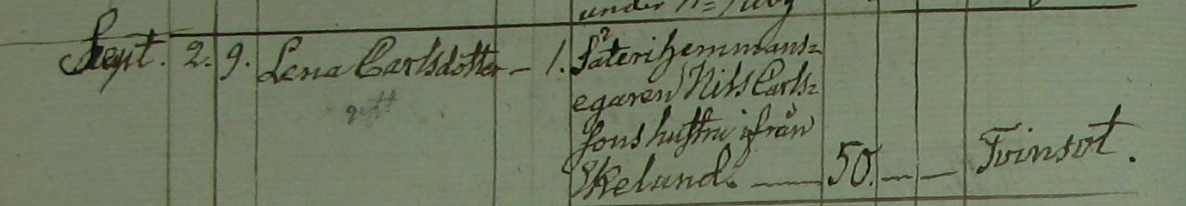 under N=
Sept. 2. 9. Lena Carlsdotter – 1. Säterihemmans=
egaren Nils Carls=
gift
sons hustru ifrån
Ekelund. — 50. — — Tvinsot.